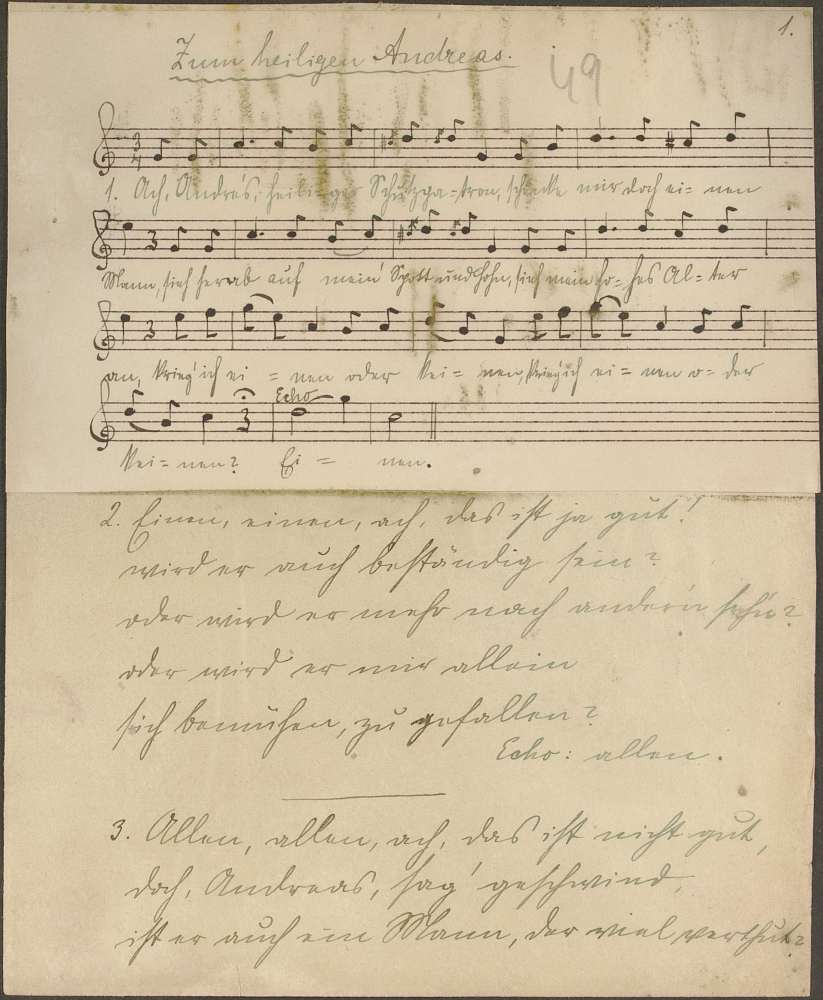 1.
Zum heiligen Andreas.
49
1. Ach, Andrès, heili-ger Schutzpa-tron, schenke mir doch ei-nen
Mann, sieh herab auf mein' Spott und Hohn, sieh mein ho-hes Al-ter
an, krieg' ich ei-nen oder kei-nen, krieg' ich ei-nen o-der
Echo
kei-nen? Ei-nen.
2. Einen, einen, ach, das ist ja gut!
wird er auch beständig sein?
oder wird er mehr nach andern seh'n?
oder wird er mir allein
sich bemühen, zu gefallen?
Echo: allen.
3. Allen, allen, ach, das ist nicht gut,
doch, Andreas, sag' geschwind,
ist er auch ein Mann, der viel verthut?